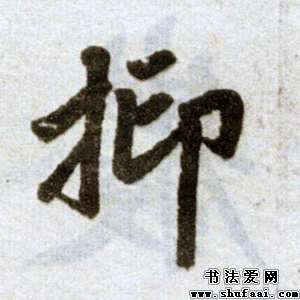 抑
书法爱网
www.shufaai.com